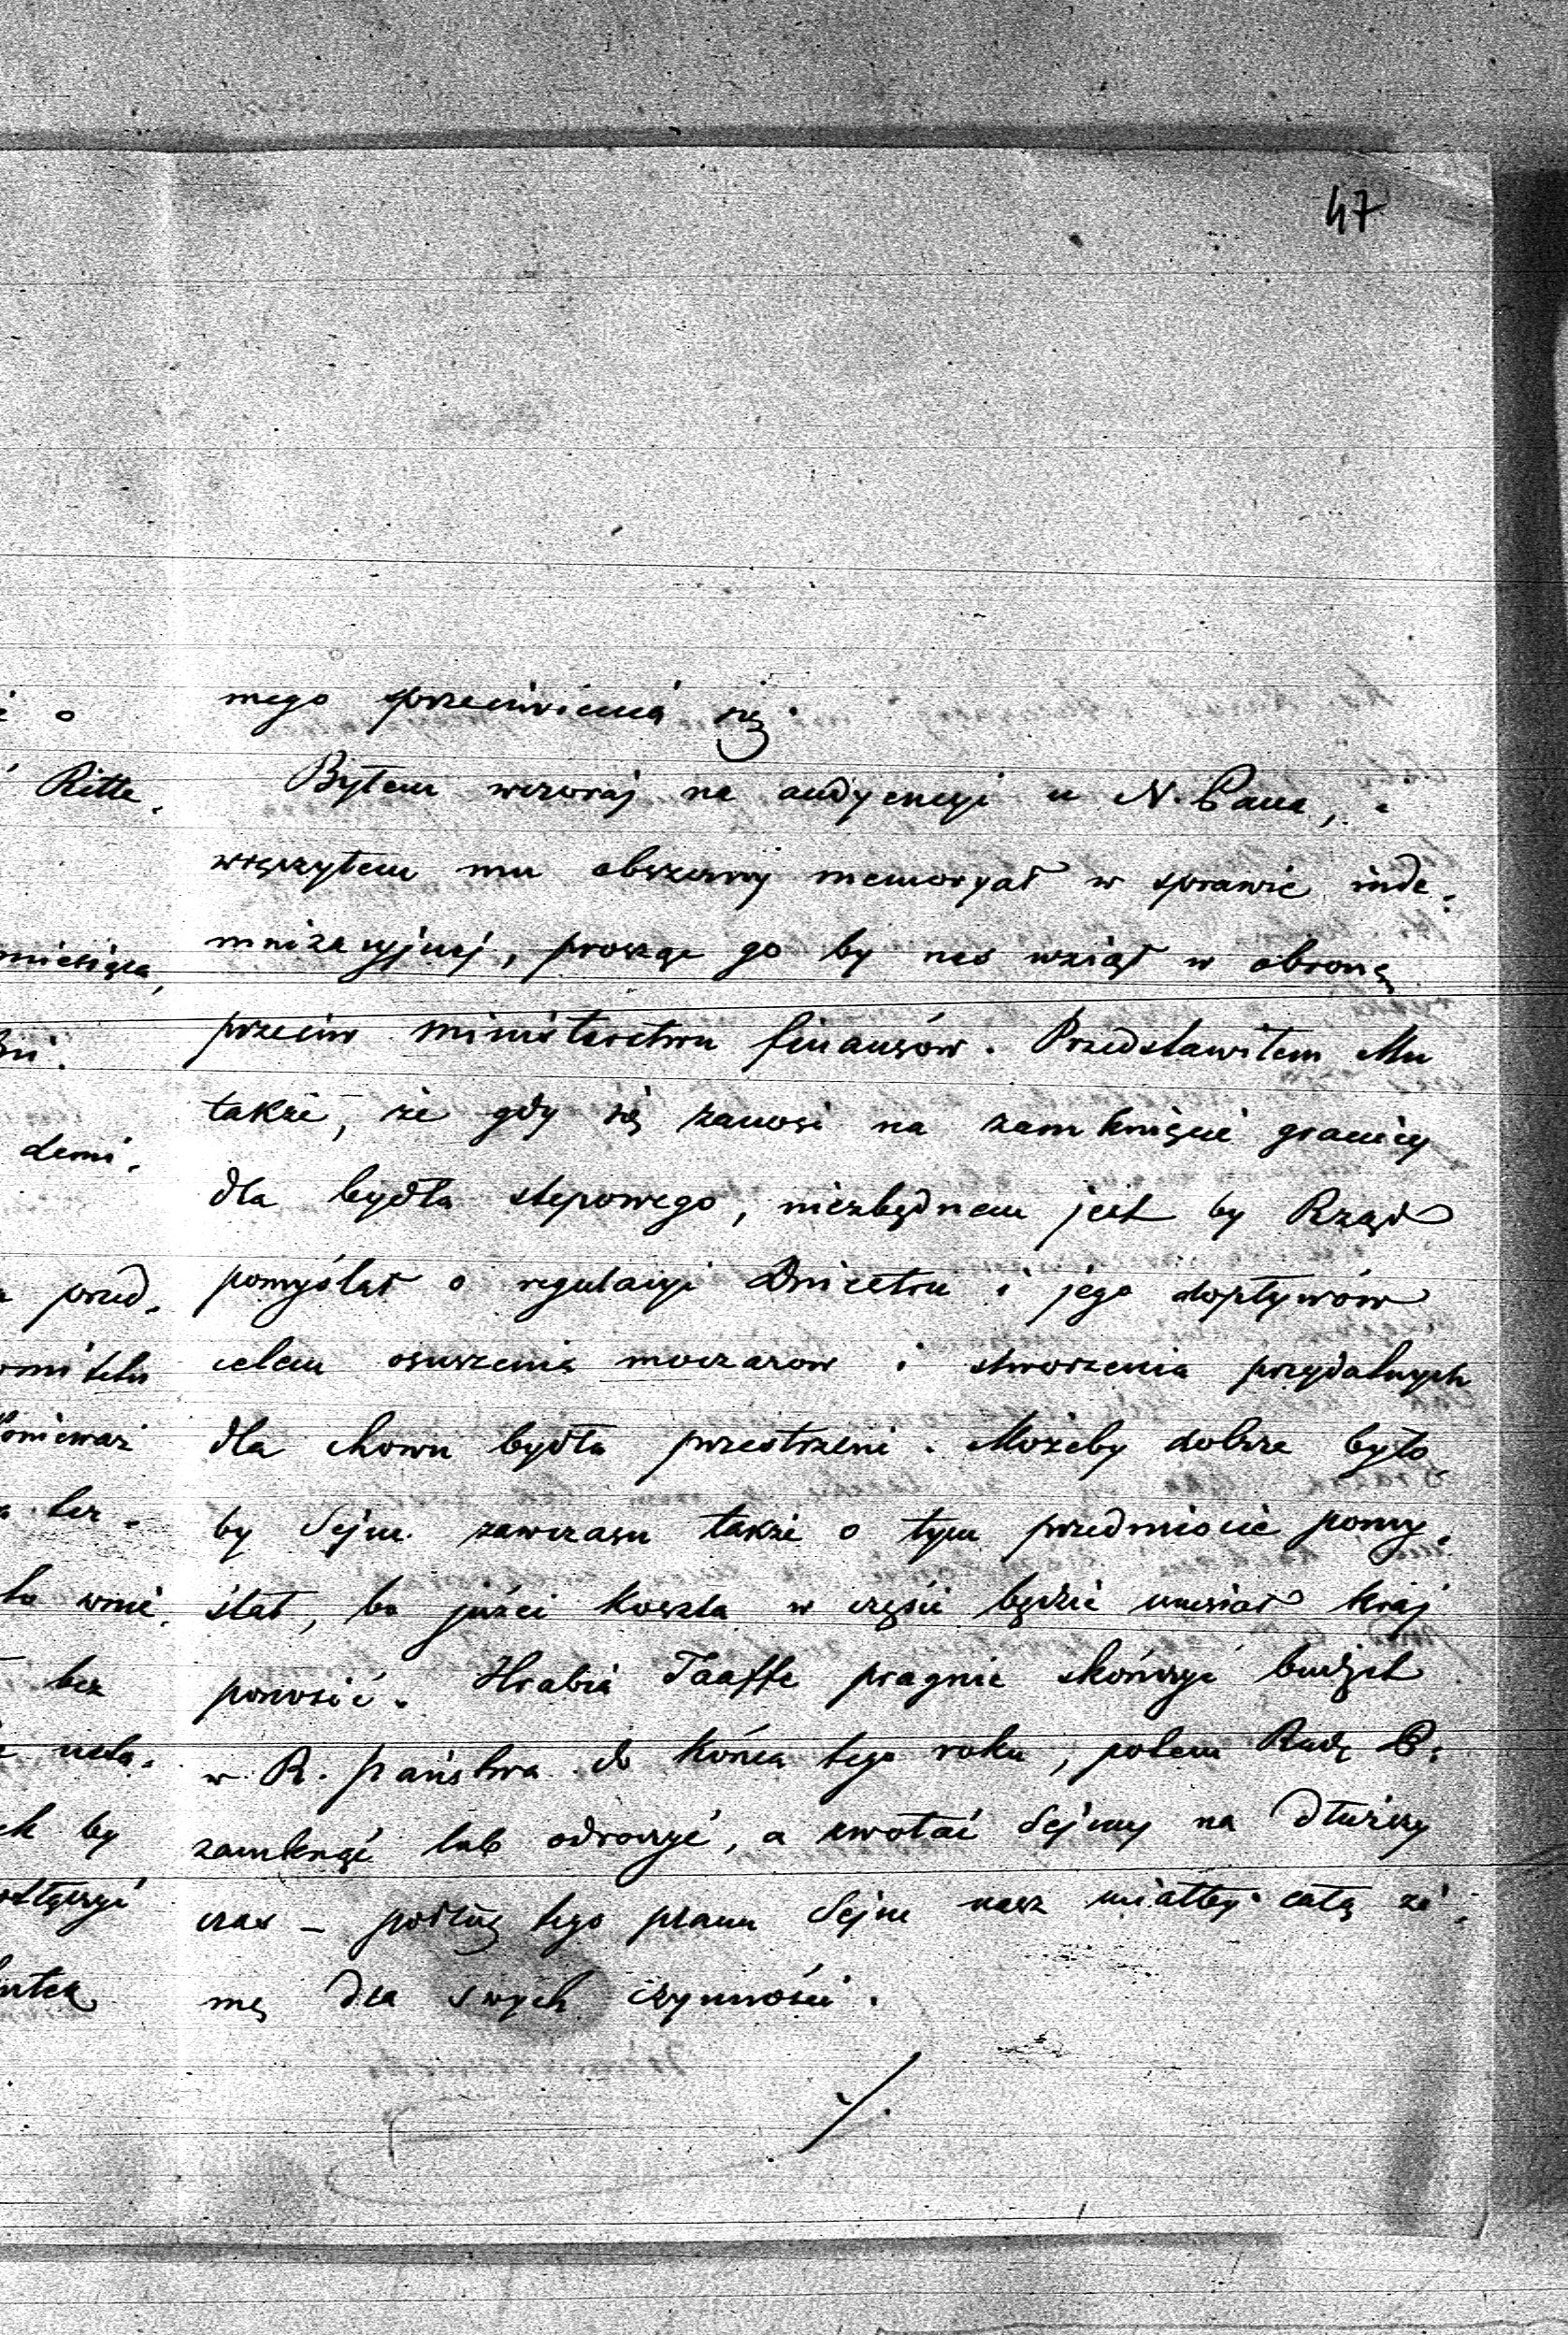 47
mego sprzeciwienia się.
Byłem wczoraj na audyencyi u N. Pana, i
wręczyłem mu obszerny memoryał w sprawie inde-
mnizacyjnej, prosząc go by nas wziął w obronę
przeciw ministerstwu finansów. Przedstawiłem Mu
także, że gdy się zanosi na zamknięcie granicy
dla bydła stepowego, niezbędnem jest by Rząd
pomyślał o regulacyi Dniestru i jego dopływów
celem osuszenia moczarow i stworzenia przydatnych
dla chowu bydła przestrzeni. Możeby dobrze było
by Sejm zawczasu także o tym przedmiocie pomy-
ślał, bo jużci koszta w części będzie musiał kraj
ponosić. Hrabia Taaffe pragnie skończyć budżet
w R. państwa do końca tego roku, potem Radę P.
zamknąć lub odroczyć, a zwołać Sejmy na dłuższy
czas – podług tego planu Sejm nasz miałby całą zi-
mę dla swych czynności.
./.
o
Ritte.
miesiąca,
demi.
przed-
ponieważ
wnie-
bez
by